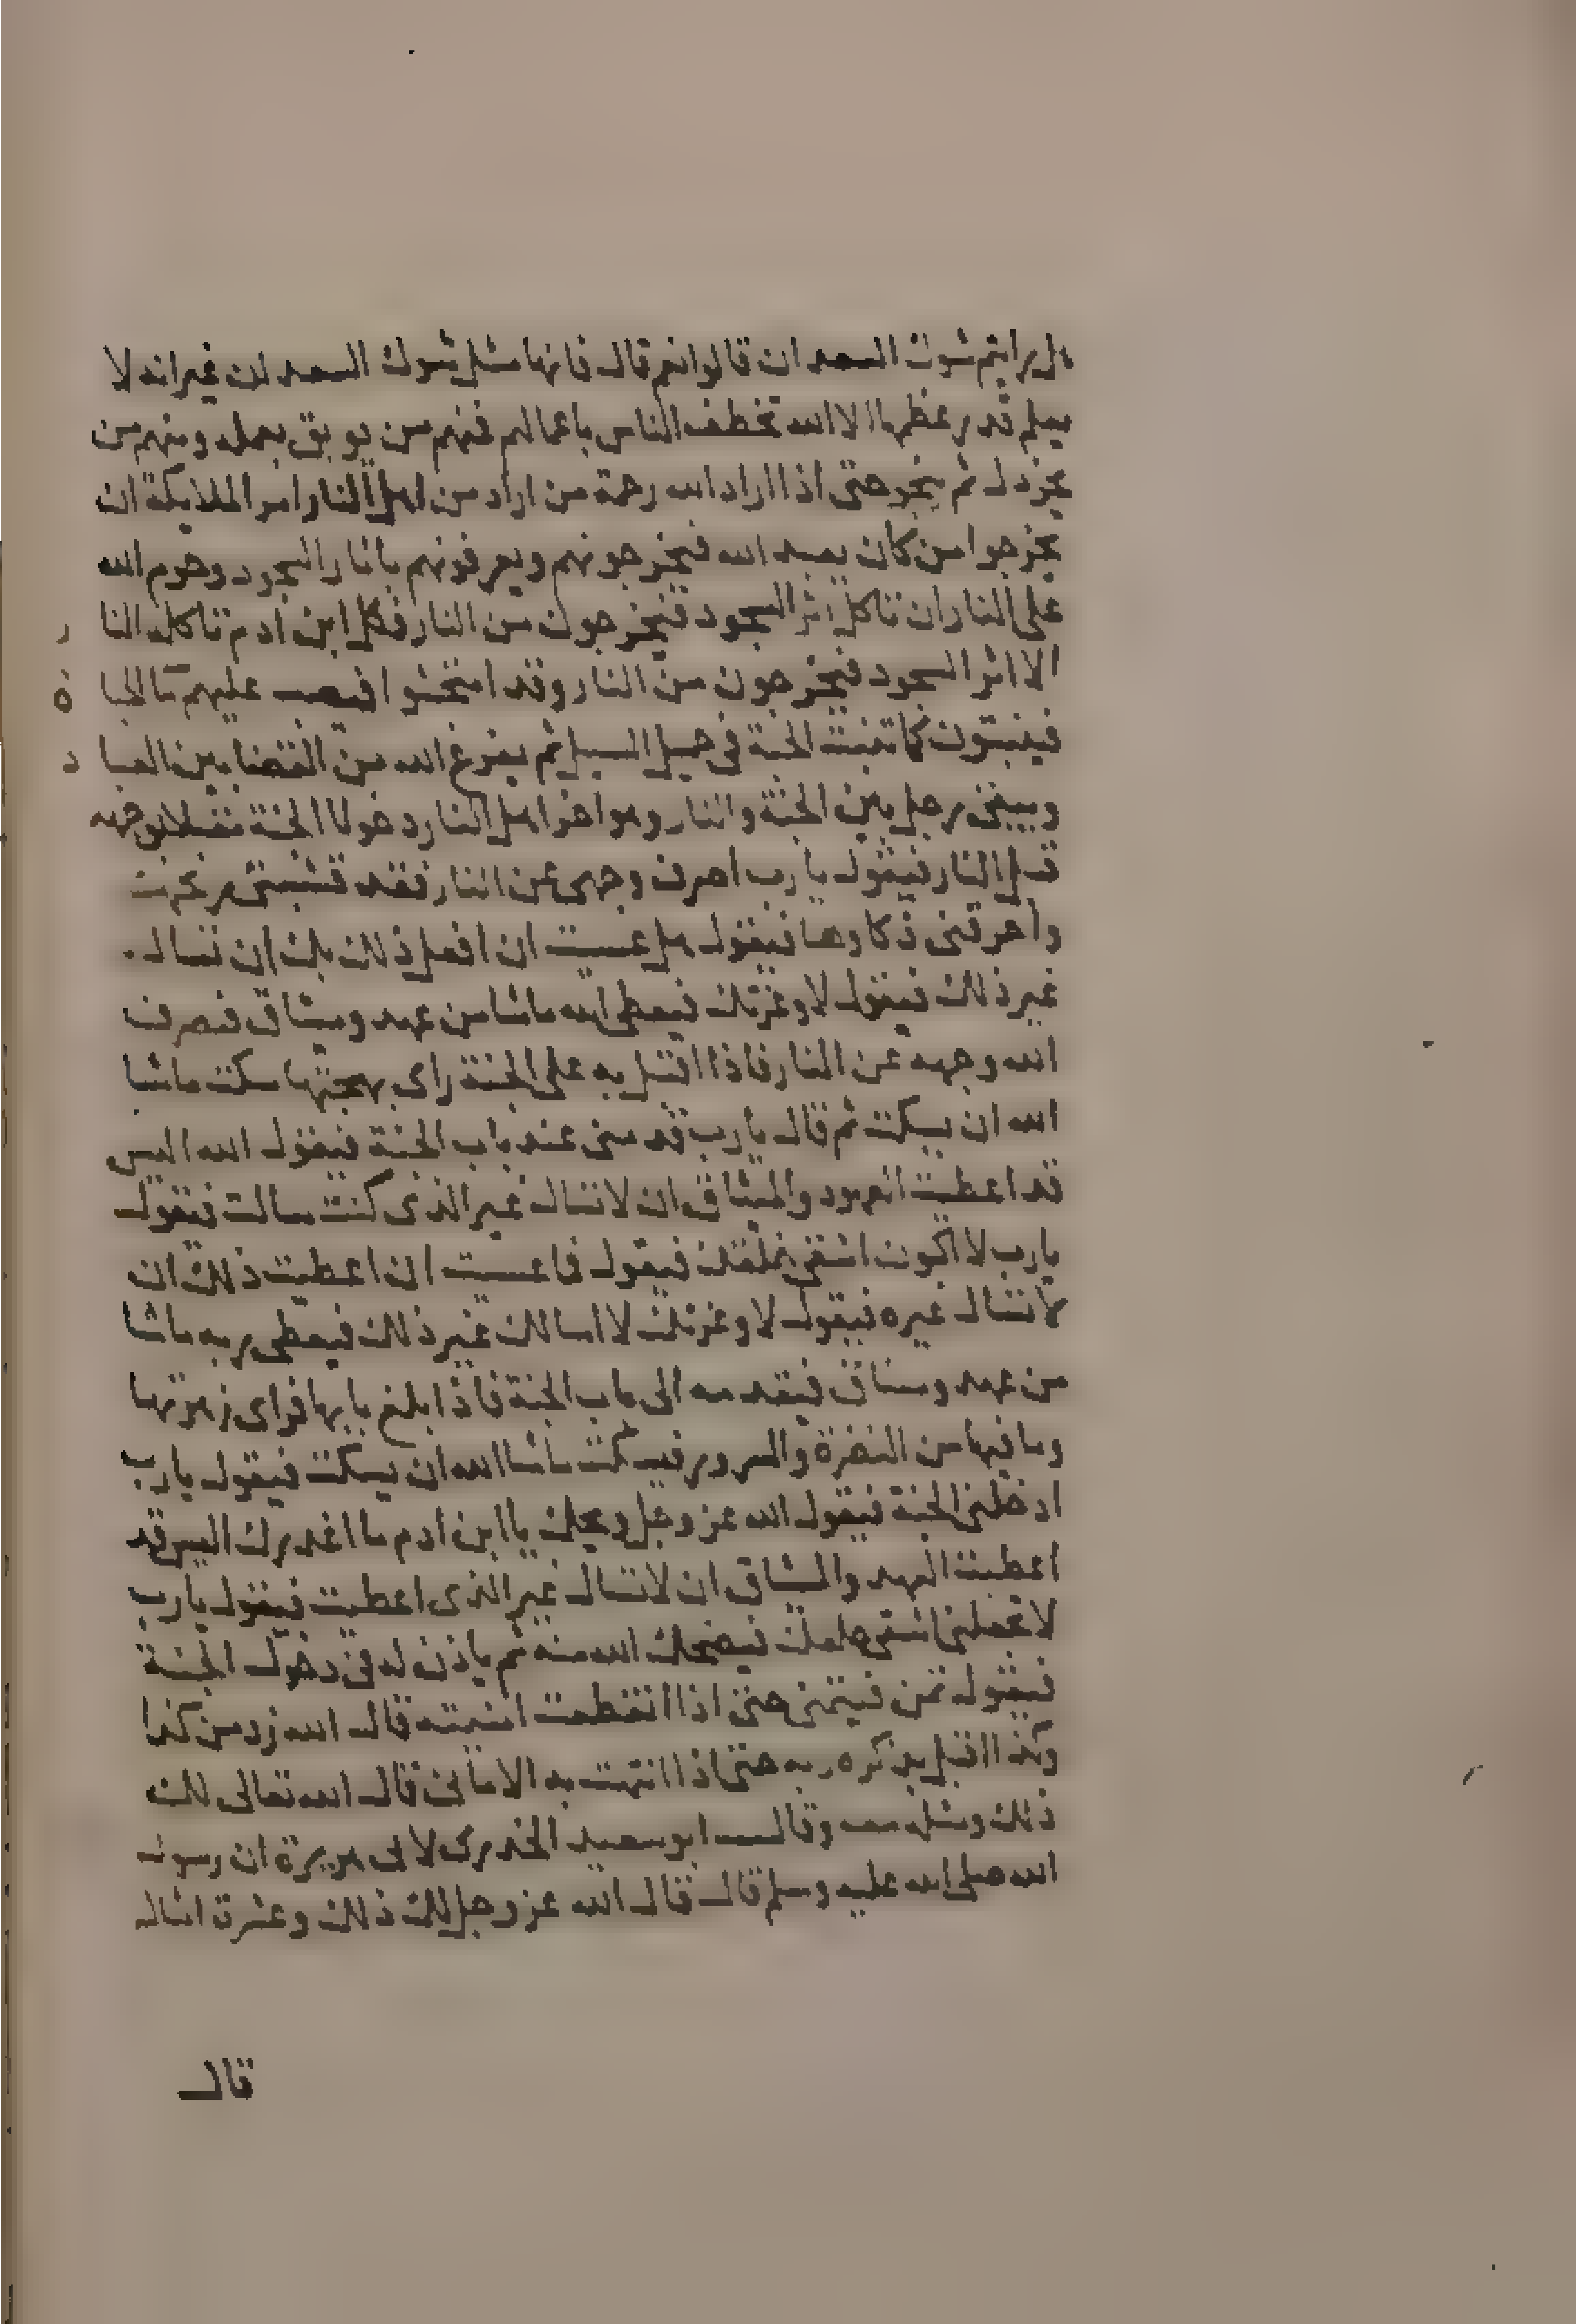 هل رايتم شوك السعدان قالوا نعم قال فانها مثل شوك السعدان غير انه لا
يعلم قدر عظمها الا الله تخطف الناس باعمالهم فمنهم من يوبق بعمله ومنهم من
يخردل ثم ينجو حتى اذا اراد الله رحمة من اراد من اهل النار امر الملايكة ان
يخرجوا من كان يعبد الله فيخرجونهم ويعرفونهم باثار السجود وحرم الله
على النار ان تاكل اثر السجود فيخرجون من النار فكل ابن ادم تاكل النار
الا اثر السجود فيخرجون من النار وقد امتحشوا فيصب عليهم ما الحياة
فينبتون كما تنبت الحبة في حميل السيل ثم يفرغ الله من القضا بين العباد
ويبقى رجل بين الجنة والنار وهو اخر اهل النار دخولا الجنة مقبلا بوجهه
قبل النار فيقول يا رب اصرف وجهي عن النار فقد قشبني ريحها
واحرقني ذكاوها فيقول هل عسيت ان افعل ذلك بك ان تسال
غير ذلك فيقول لا وعزتك فيعطي الله ماشا من عهد وميثاق فيصرف
الله وجهه عن النار فاذا اقبل به على الجنة راى بهجتها سكت ماشا
الله ان يسكت ثم قال يا رب قدمني عند باب الجنة فيقول الله اليس
قد اعطيت العهود والميثاق ان لا تسال غير الذي كنت سالت فيقول
يارب لا اكون اشقى خلقك فيقول فما عسيت ان اعطيت ذلك ان
لا تسال غيره فيقول لا وعزتك لا اسالك غير ذلك فيعطي ربه ماشا
من عهد وميثاق فيقدمه الى باب الجنة فاذا بلغ بابها فراى زهرتها
وما فيها من النضرة والسرور فيسكت ماشا الله ان يسكت فيقول يارب
ادخلني الجنة فيقول الله عز وجل ويحك يا ابن ادم ما اغدرك اليس قد
اعطيت العهد والميثاق ان لا تسال غير الذي اعطيت فيقول يارب
لا تجعلني اشقى خلقك فيضحك الله منه ثم ياذن له في دخول الجنة
فيقول تمن فيتمنى حتى اذا انقطعت امنيته قال الله زد من كذا
وكذا اقبل يذكره ربه حتى اذا انتهت به الاماني قال الله تعالى لك
ذلك ومثله معه وقال ابو سعيد الخدري لابي هريرة ان رسول
الله صلى الله عليه وسلم قال قال الله عز وجل لك ذلك وعشرة امثاله
قال